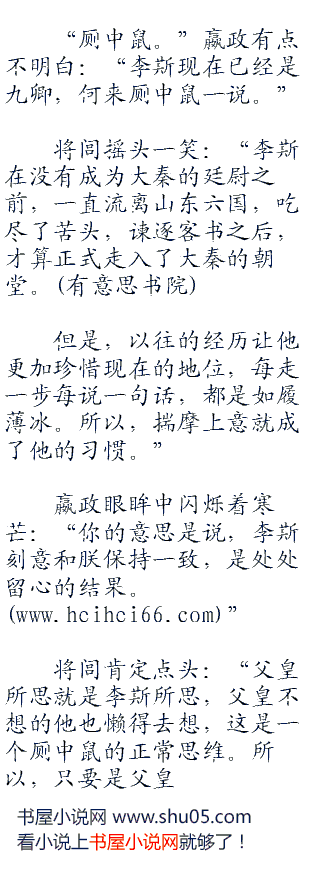 “厕中鼠。”嬴政有点
不明白：“李斯现在已经是
九卿，何来厕中鼠一说。”
将闾摇头一笑：“李斯
在没有成为大秦的廷尉之
前，一直流离山东六国，吃
尽了苦头，谏逐客书之后，
才算正式走入了大秦的朝
堂。(有意思书院)
但是，以往的经历让他
更加珍惜现在的地位，每走
一步每说一句话，都是如履
薄冰。所以，揣摩上意就成
了他的习惯。”
嬴政眼眸中闪烁着寒
芒：“你的意思是说，李斯
刻意和朕保持一致，是处处
留心的结果。
(www.hcihci66.com)”
将闾肯定点头：“父皇
所思就是李斯所思，父皇不
想的他也懒得去想，这是一
个厕中鼠的正常思维。所
以，只要是父皇
书屋小说网 www.shu05.com
看小说上书屋小说网就够了！